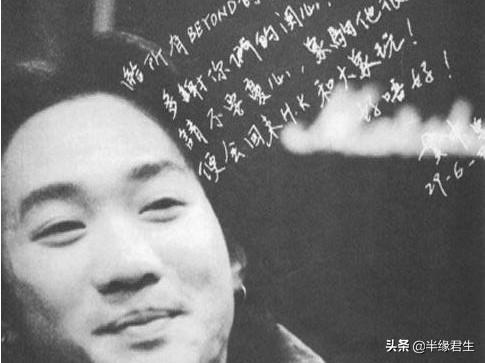 給所有BEYOND的
多謝你哋的関心,
請不要憂心, 家駒他很
便会回来H.K和大家玩!
好唔好!
29-6-
头条 @半缘君生